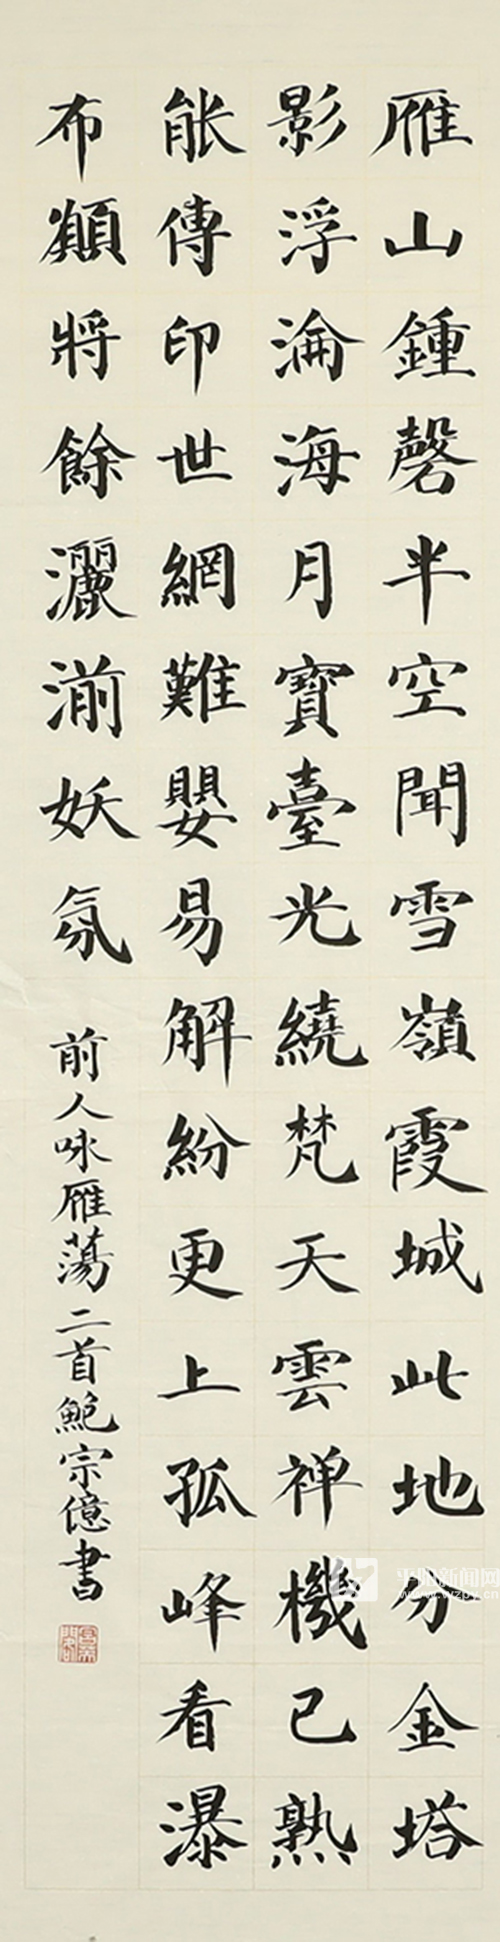 雁山鍾磬半空聞雪嶺霞城此地分金塔
影浮淪海月寶臺光繞梵天雲禅機已熟
能傳印世網難嬰易解紛更上孤峰看瀑
布顱將餘灑湔妖氛
前人咏雁蕩二首鮑宗億書
平阳新闻网
www.wzpy.cn